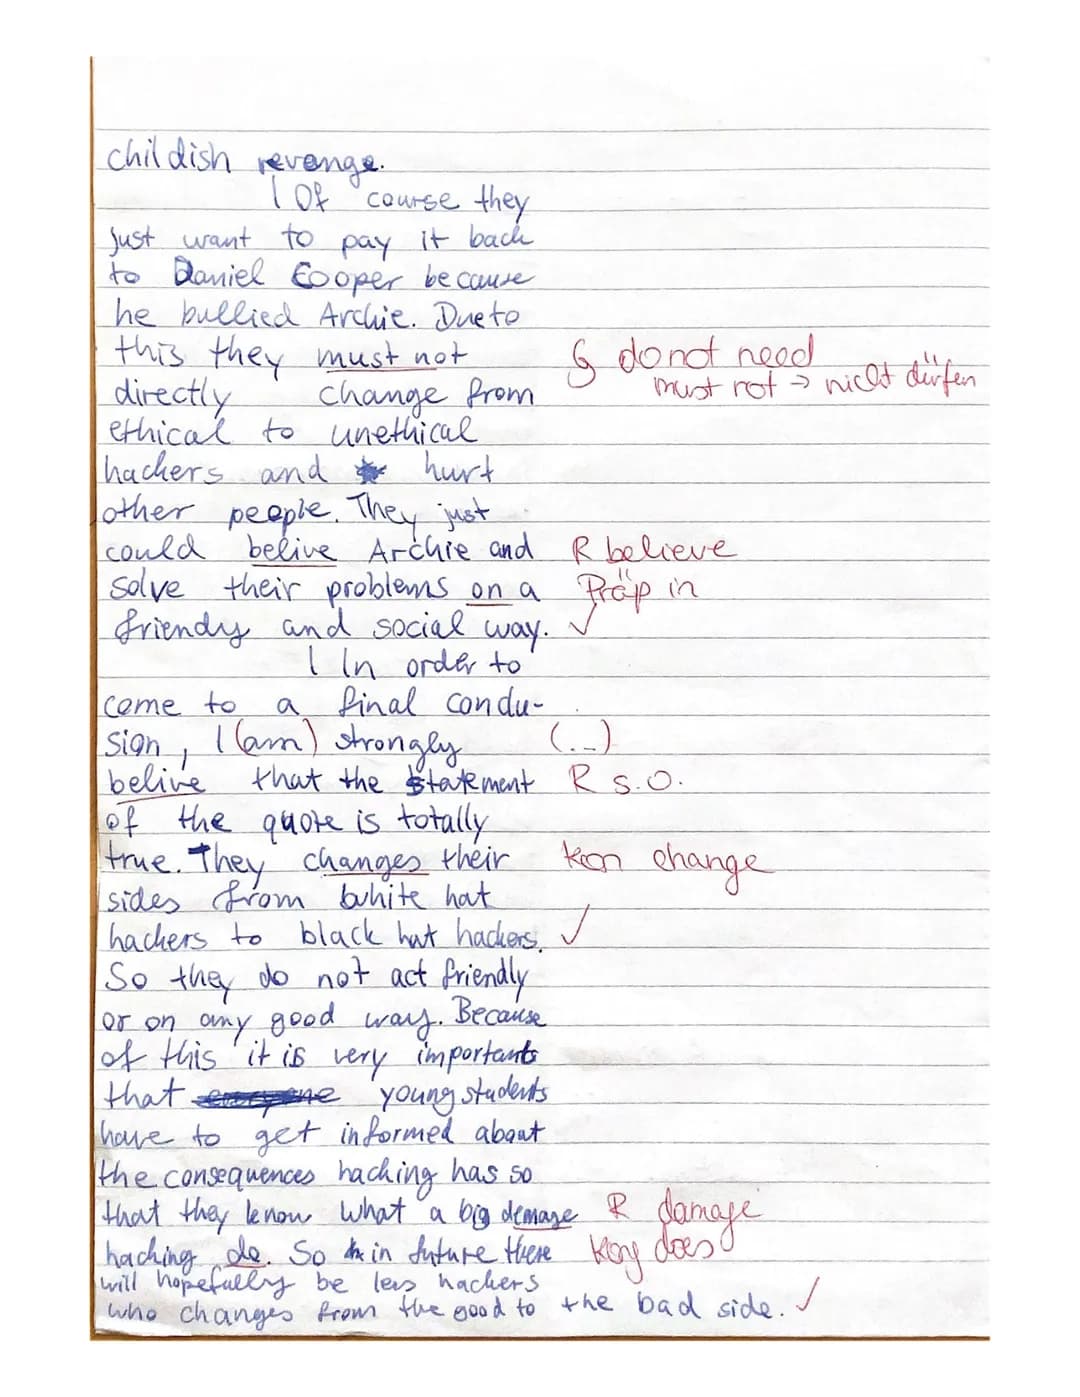 childish revenge.
| Of course they
just want to pay it back
to Daniel Cooper because
he bullied Archie. Due to
this they must not G do not need
must not → nicht dürfen
directly change from
ethical to unethical
hackers and hurt
other people. They just
could belive Archie and R believe
solve their problems on a Präp in
friendy and social way. ✓
| In order to
come to a final conclu-
sion, I (am) strongly (...)
belive that the statement R s.o.
of the quote is totally
true. They changes their Kon change
sides from white hat
hackers to black hat hackers. ✓
So they do not act friendly
or on any good way. Because
of this it is very important
that everyone young students
have to get informed about
the consequences hacking has so
that they know what a big demage R damage
hacking do. So in future there Kon does
will hopefully be less hackers
who changes from the good to the bad side. ✓